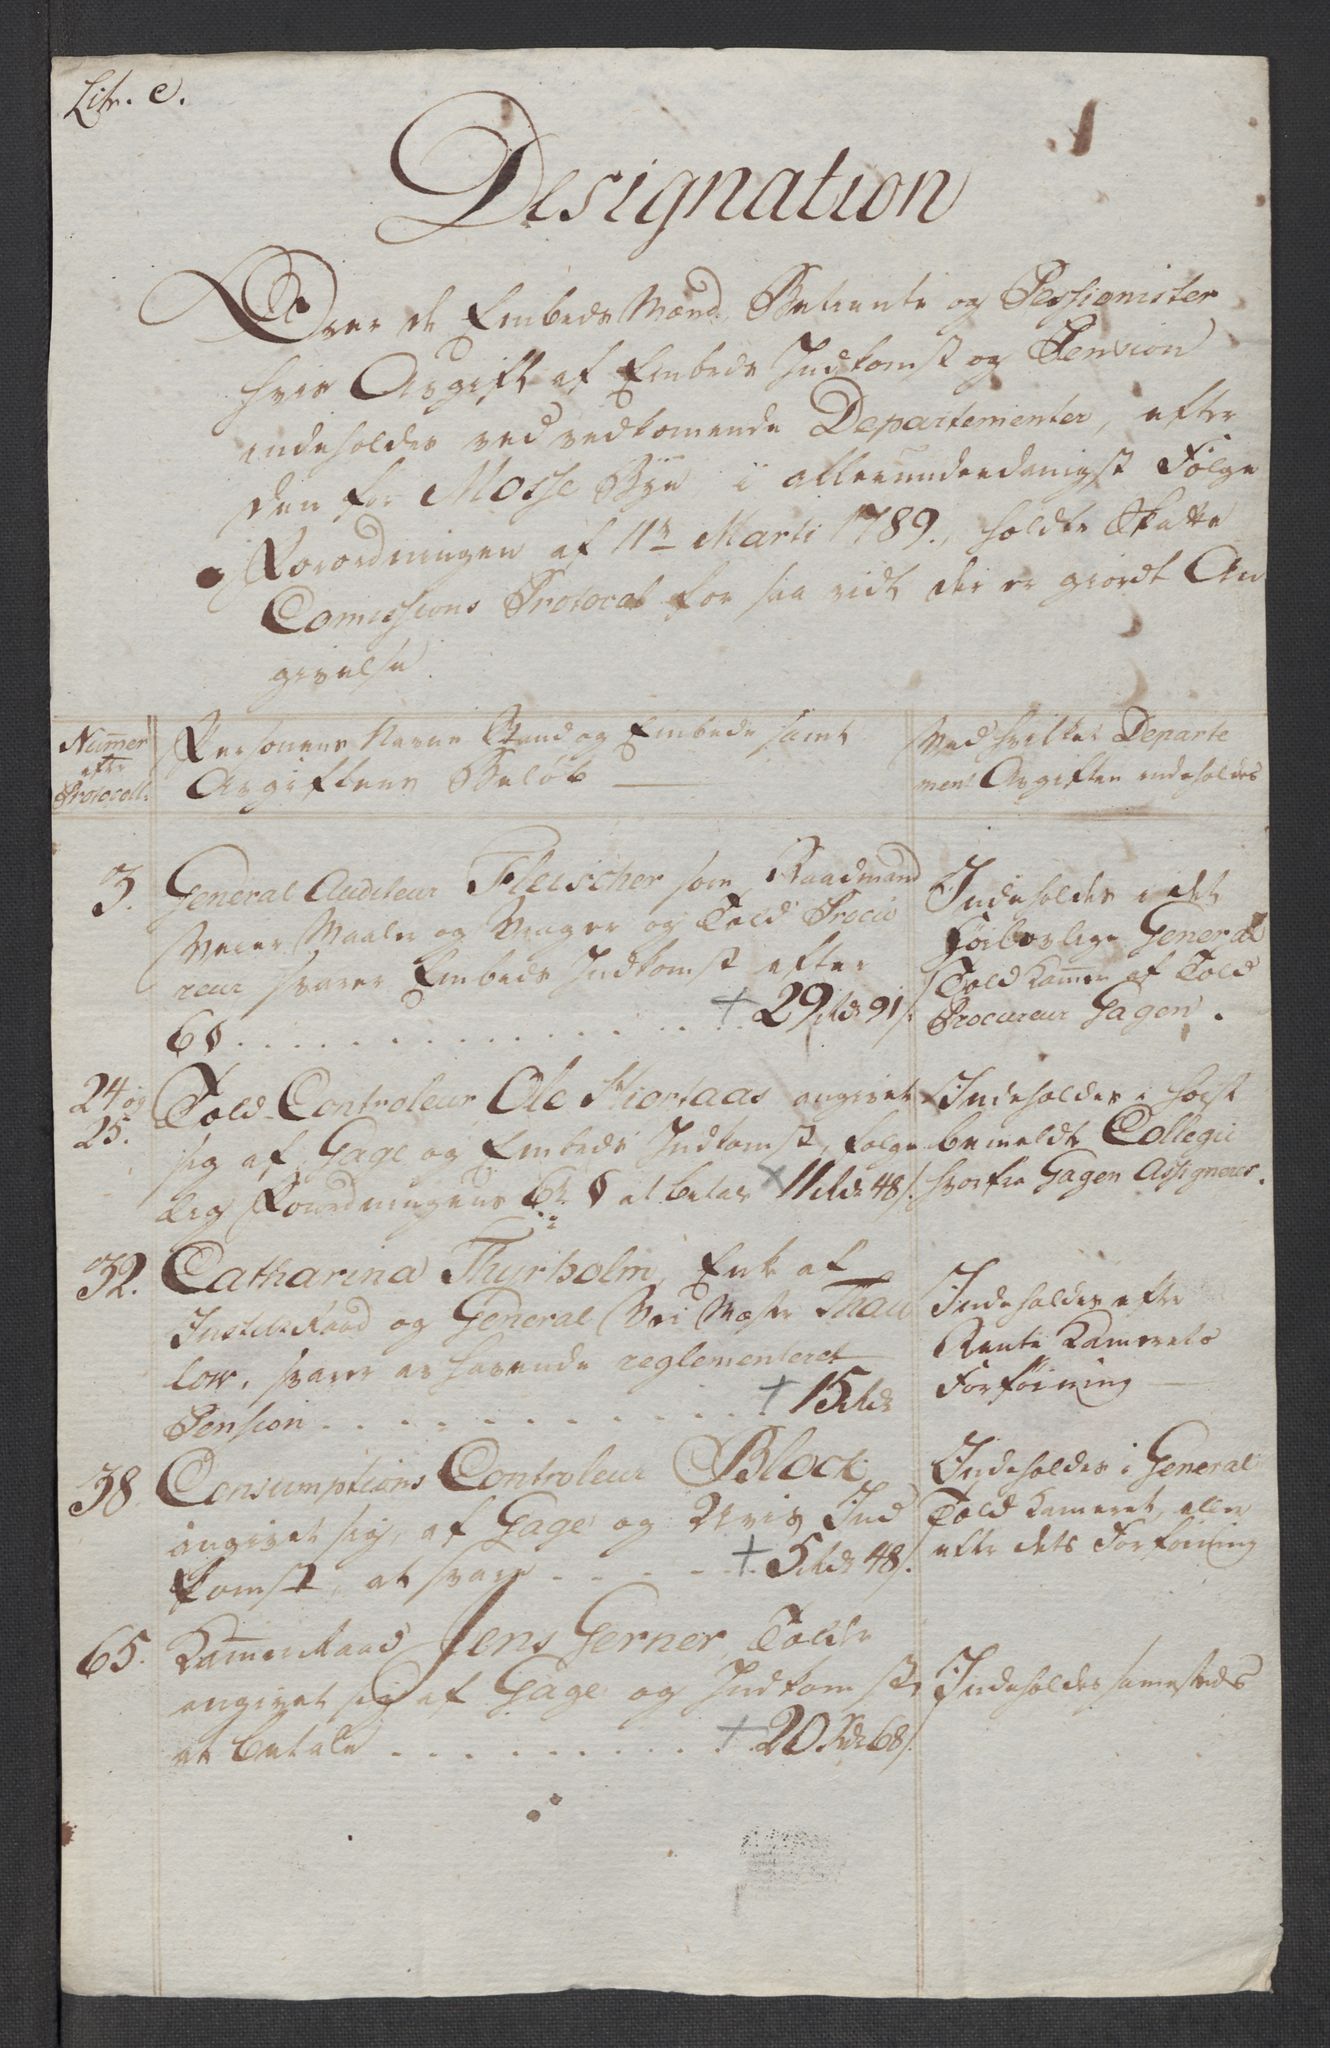 Litr. e.
Designation
Over de Embeds Mænd, Betiente og Pessionister
hvis Avgift af Embeds Indkomst og Pension
indeholdes ved vedkomende Departementer, efter
den for Mosse Bye i allerunderdanigst Følge
Forordningen af 11te Marti 1789., holdte Skatte
Comissions Protocol for saa vidt der er giordt An
givelse.
Numer efter Protocoll.
Personens Navne Stand og Embede samt
Avgiftens Beløb
Ved hvilket Departe
ment Avgiften indeholdes
3. General Auditeur Fleischer som Raadmand
Veier Maaler og Vrager og Told Procu
reur svarer Embeds Indkomst efter
6 § . . . . . . + 29 rdr 91 s.
Indeholdes i det
General
Told Kamer af Told
Procureur Gagen.
24 og
25.
Told Controleur Ole Hiortaas angivet
sig af Gage og Embeds Indkomst, følge
lig Forordningens 6te § at betale × 11 rdr 48 s.
Indeholdes i høist
bemeldte Collegie
hvorfra Gagen Assigneres.
32. Catharina Thyrholm, Enke af
Justits Raad og General Vei Mester Thau
low, svarer as havende reglementeret
Pension . . . . . . + 15 rdr
Indeholdes efter
Rente Kamerets
Forføining
38 Consumptions Controleur Block
angivet sig, af Gage og Uvis Ind
komst, at svare . . . . + 5 rdr 48 s.
Indeholdes i General
Told Kameret, eller
efter dets Forføining
65. Kammer Raad Jens Gerner, Tolder
angivet sig af Gage og Indkomst
at betale . . . . . . + 20 Rdr 68 s.
Indeholdes samesteds